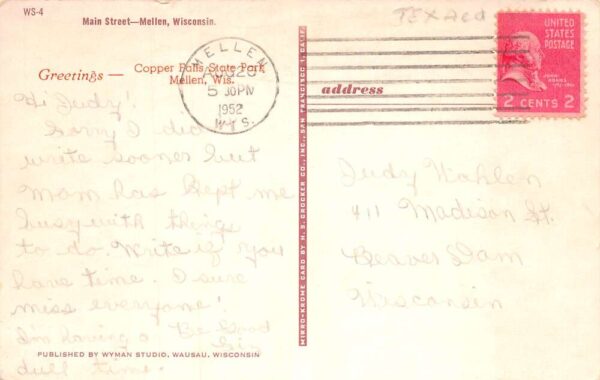 WS-4
Main Street—Mellen, Wisconsin.
TEXACO
Greetings —
Copper Falls State Park
Mellen, Wis.
MELLEN
AUG 20
5 30 PM
1952
WIS.
UNITED
STATES
POSTAGE
JOHN
ADAMS
2 CENTS 2
address
Hi Judy!
Sorry I did
write sooner but
Mom has kept me
busy with things
to do. Write if you
have time. I sure
miss everyone!
I'm having a
dull time.
Be Good
MIRRO-KROME CARD BY H. S. CROCKER CO., INC., SAN FRANCISCO 1, CALIF.
Judy Wahlen
411 Madison St.
Beaver Dam
Wisconsin
PUBLISHED BY WYMAN STUDIO, WAUSAU, WISCONSIN